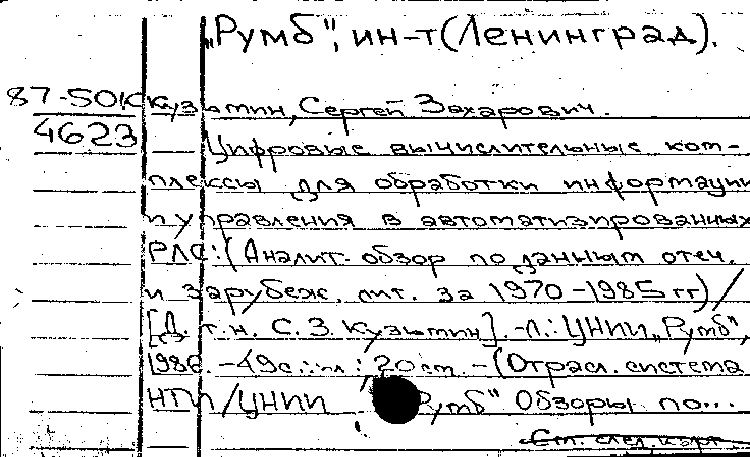 „Румб", ин-т(Ленинград).
87-50K Кузьмин, Сергей Захарович.
4623 Цифровые вычислительные ком-
плексы для обработки информации
и управления в автоматизированных
РЛС: (Аналит. обзор по данным отеч.
и зарубеж. лит. за 1970-1985 гг) /
[Д. т. н. С. З. Кузьмин]. -Л.: ЦНИИ „Румб",
1986. -49с.: ил.; 20 см. -(Отрасл. система
НТИ/ЦНИИ „Румб" Обзоры по...
См. след. карт.